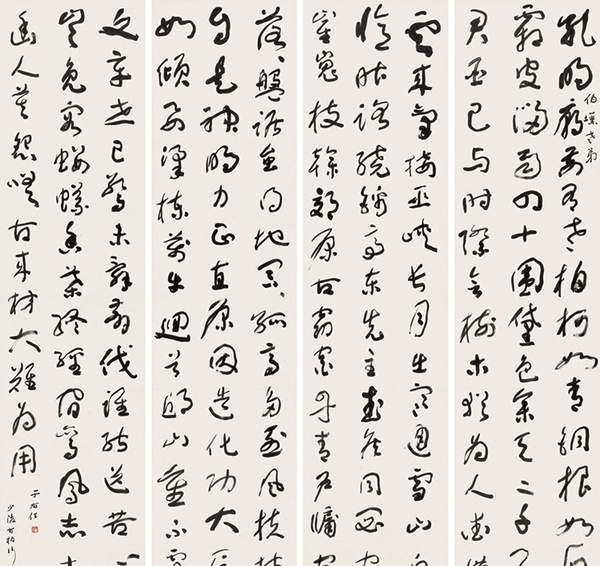 孔明廟前有老柏柯如青銅根如石
伯壎老弟
霜皮溜雨四十圍黛色參天二千
君臣已与時際會樹木猶為人愛惜
雲來氣接巫峽長月出寒通雪山白
憶昨路繞錦亭東先主武侯同閟宮
崔嵬枝榦郊原古窈窕丹青戶牖空
落落盤踞雖得地冥冥孤高多烈風扶持
自是神明力正直原因造化功大厦
如傾要梁棟萬牛迴首丘山重不露
文章世已驚未辭翦伐誰能送苦
豈免容螻蟻香葉終經宿鸞鳳志士
幽人莫怨嗟古來材大難為用
于右任
少陵古柏行